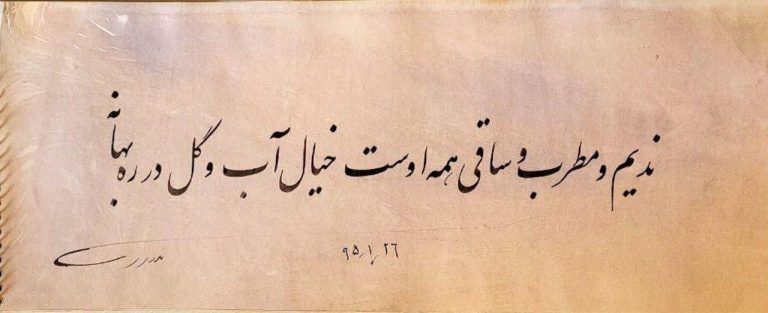 ندیم و مطرب و ساقی همه اوست خیال آب و گل در ره بهانه
۹۵٫۱٫۲۶